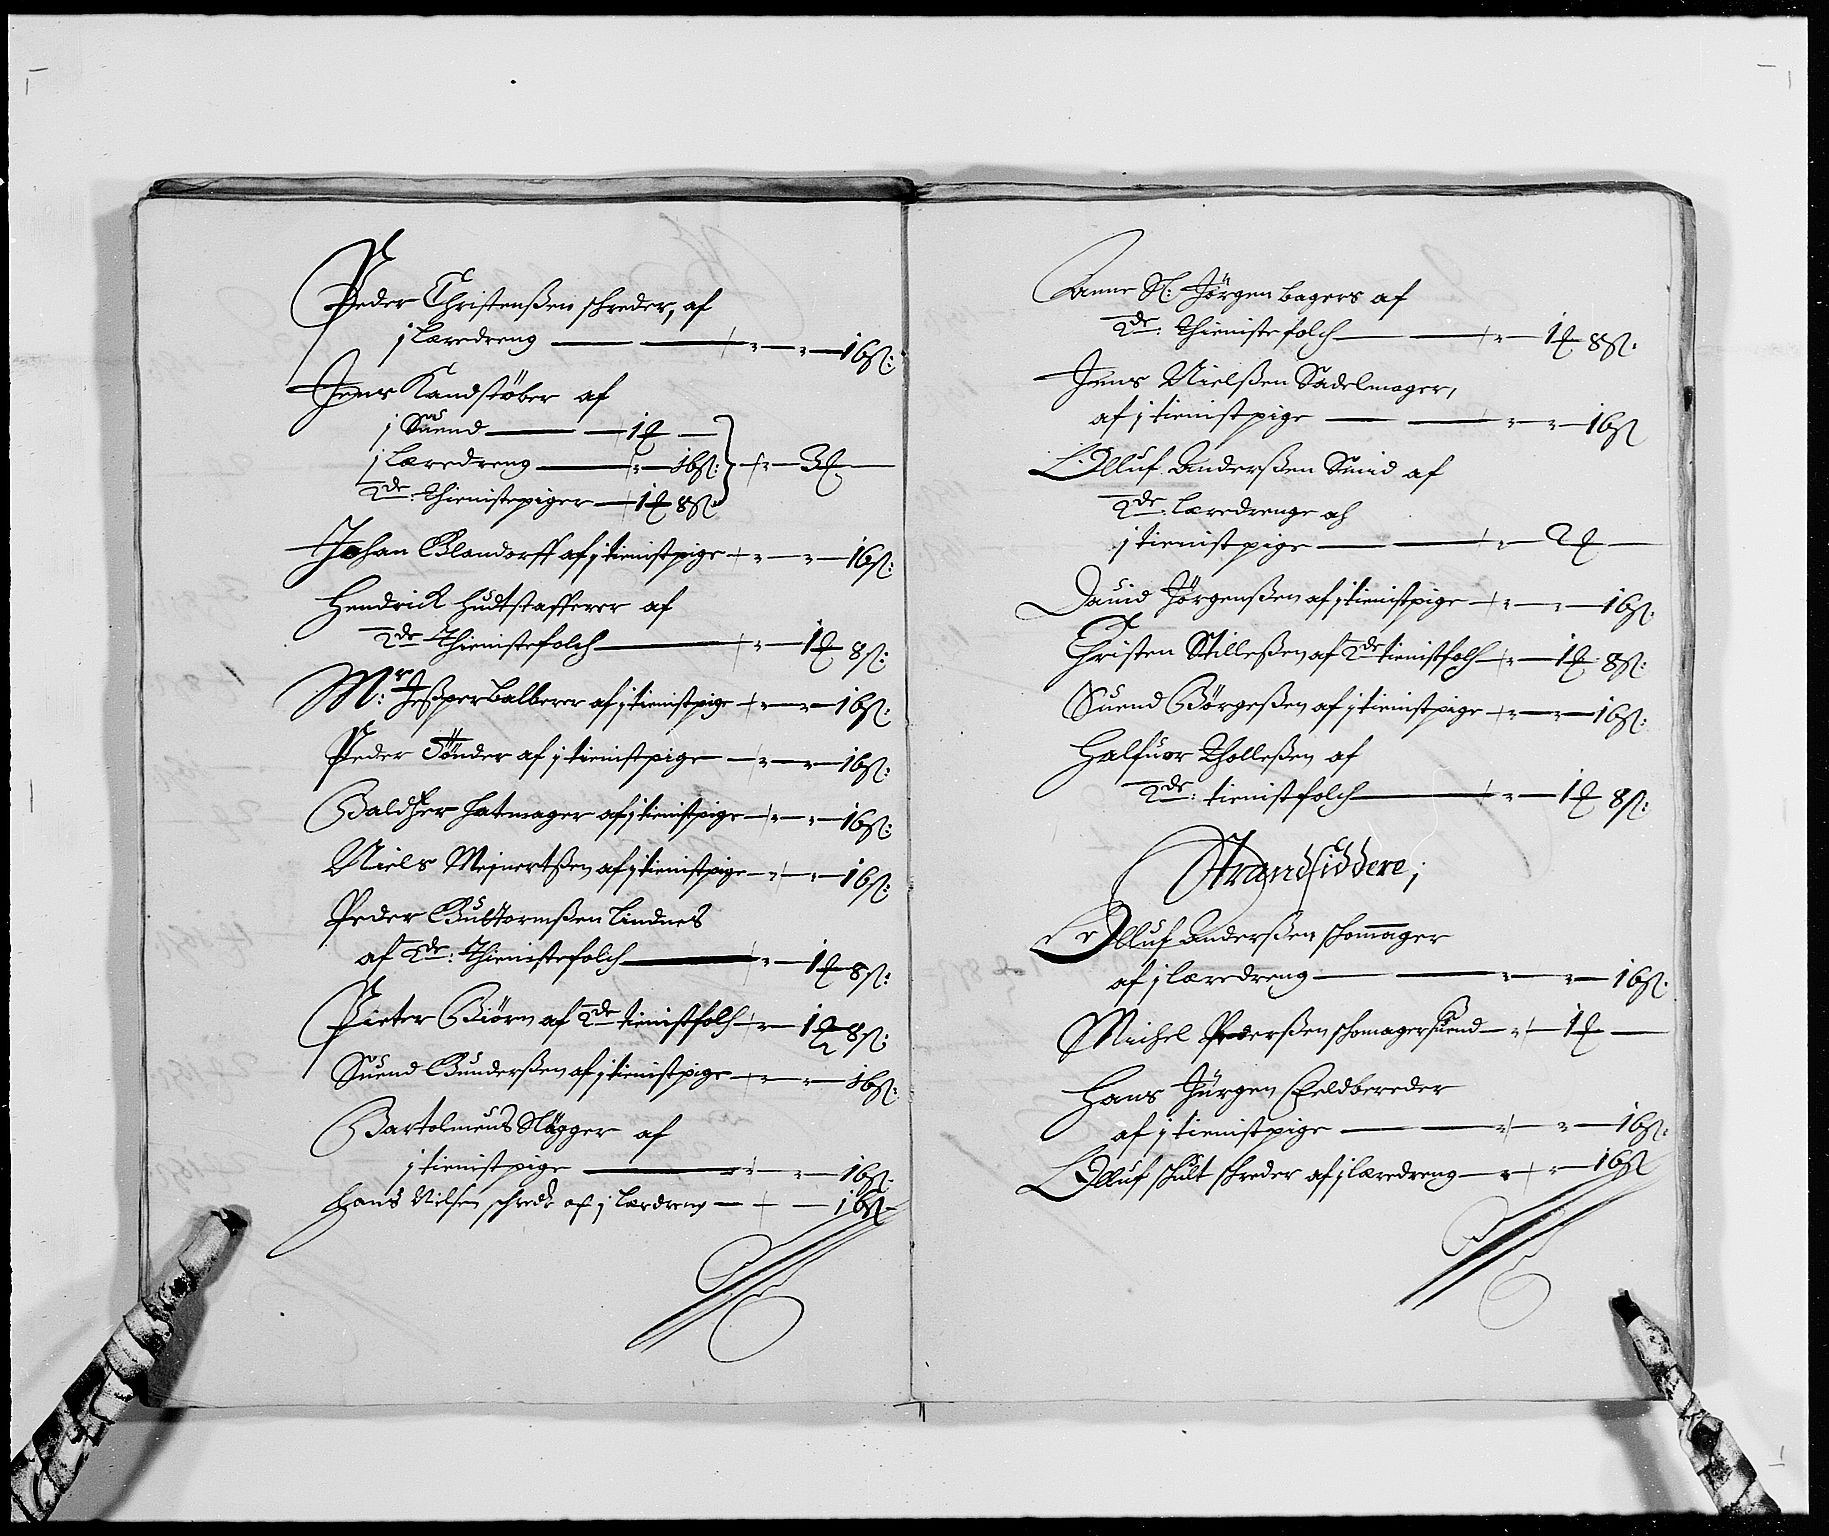 Peder Christenßen skreder, af
j læredreng — — " — " — 16ß:
Jens Kandstöber af
j Suend — — 1 —
j læredreng — " — 16ß: — " — 3 —
2de: thienistepiger — 1 8ß:
Johan Blandorff af j tienistpige — " — " — 16ß:
Hendrick Hudtstafferer af
2de Thienistefolch — " — 1 8ß:
Mr: Jeßper balberer af j tienistpige — " — " — 16ß:
Peder Tönder af j tienistpige — " — " — 16ß:
Baldtzer hatmager af j tienistpige — " — " — 16ß:
Niels Mejnertßen af j tienistpige — " — " — 16ß:
Peder Guttormßen Lindnes
af 2de: Thienistefolch — " — 1 8ß:
Pieter Biörn af 2de tienistfolch — " — 1 8ß:
Suend Gunderßen af j tienistpige — " — " — 16ß:
Bartolmeus Slögger af
j tienistpige — " — " — 16ß:
Hans Nielsen schreder af j lærdreng — — 16ß
Anne Sl: Jörgen bagers af
2de: thienistefolch — — " — 1 8ß:
Jens Nielßen Sadelmager,
af j tienistpige — — " — " — 16ß
Olluf Anderßen Smid af
2de: læredrenge och
j tienistpige — — " — 2 —
Dauid Jörgenßen af j tienistpige — " — " — 16ß:
Christen Stilleßen af 2de tienistfolch — " — 1 8ß:
Suend Börgeßen af j tienistpige — " — " — 16ß:
Halfuor Tholleßen af
2de: tienistfolch — " — 1 8ß:
Strandsiddere;
Olluf Anderßen skomager
af j læredreng — — " — " — 16ß:
Michel Pederßen skomagersuend — " — 1 —
Hans Jürgen Feldbereder
af j tienistpige — — " — " — 16ß:
Olluf skult skreder af j læredreng — " — " — 16ß